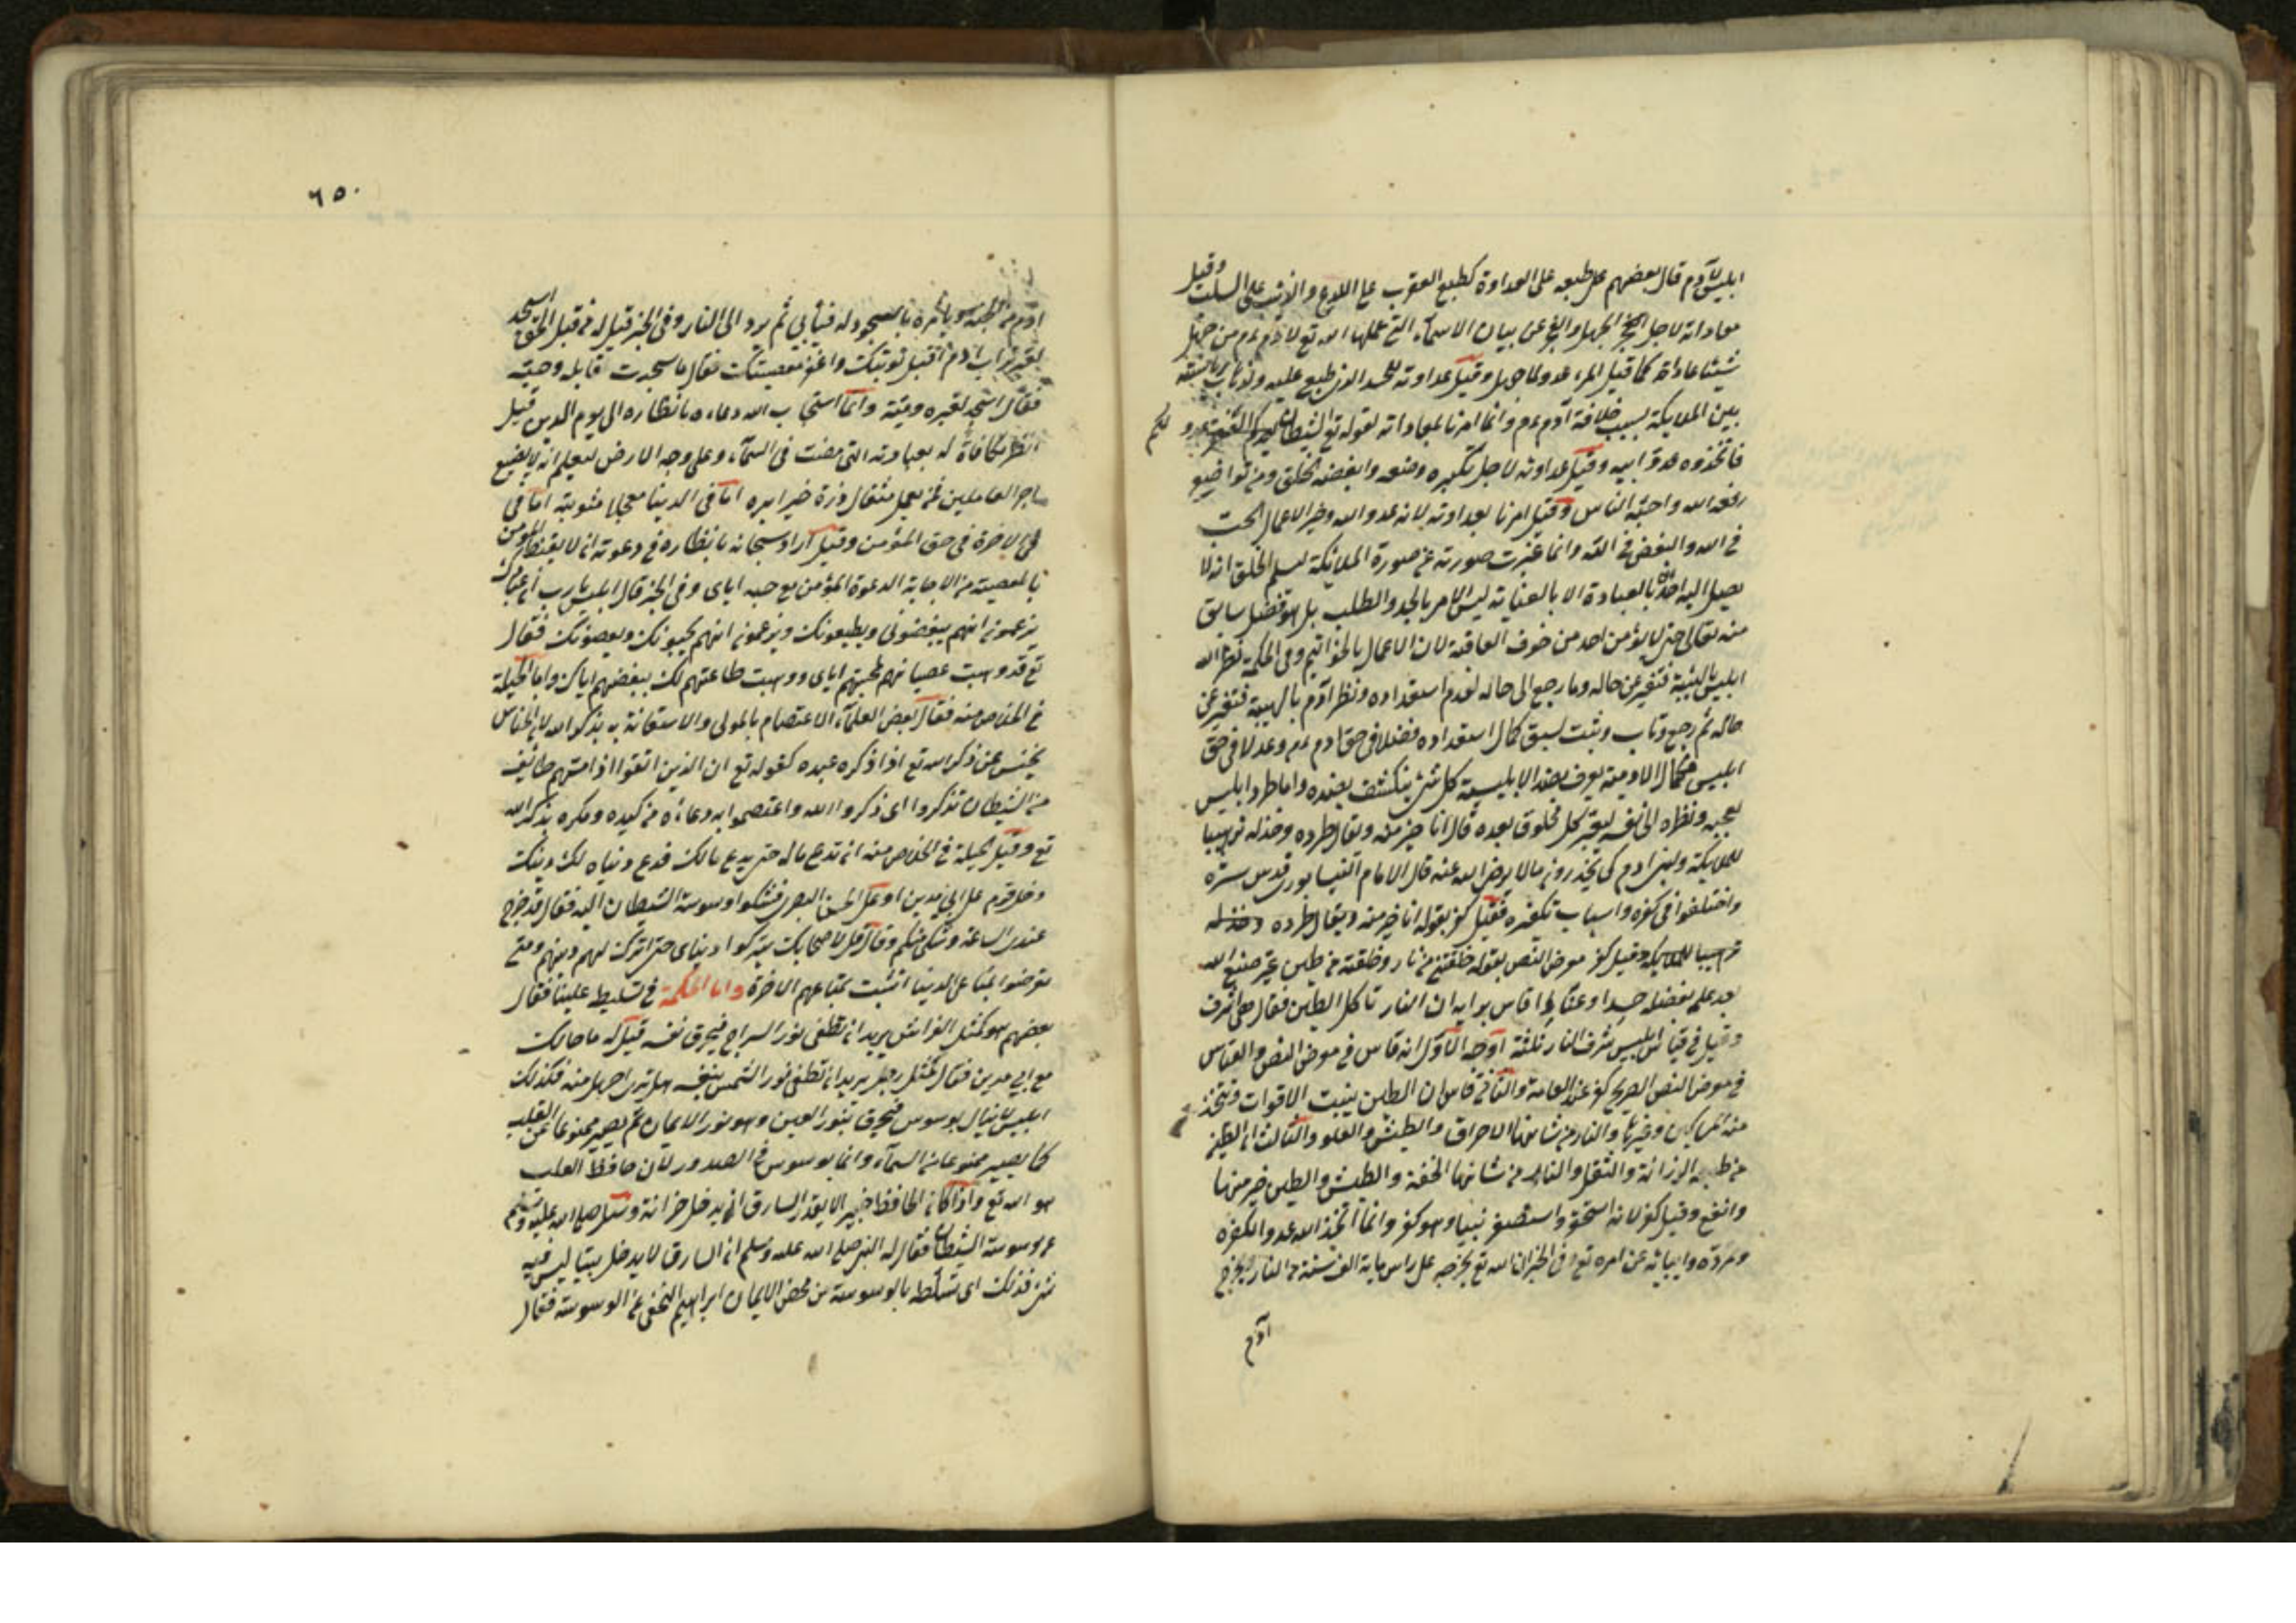 ابليس لآدم قال بعضهم على طبعه على العداوة كطبع العقرب على اللدغ والذئب على السلب وقيل
معاداته لاجل الجهل والعجز عن بيان الاسمآء التى علمها الله تع لادم ءم من جهل
شيئا عاداه كما قيل المرء عدو لما جهل وقيل عداوته للحسد الذى طبع عليه
بين الملايكة بسبب خلافة آدم ءم وانما امرنا بمعاداته لقوله تع ان الشيطان لكم عدو
فاتخذوه عدوا وقيل عداوته لاجل تكبره وضعه وابغضه الخلق ومن تواضع
رفعه الله واحبه الناس وقيل امرنا بعداوته لانه عدو الله وخير الاعمال الحب
فى الله والبغض فى الله وانما غيرت صورته عن صورة الملائكة ليعلم الخلق انه لا
يصل اليه احد بالعبادة الا بالعناية ليس الامر بالجد والطلب بل هو فضل سابق
منه تعالى حتى لا يؤمن احد من خوف العاقبة لان الاعمال بالخواتيم وفى الحكمة نظر الله
ابليس بالهيبة فتغير عن حاله وما رجع الى حاله لعدم استعداده ونظر آدم بالهيبة فتغير عن
حاله ثم رجع وتاب وثبت لسبق كمال استعداده فضلا فى حق ادم ءم وعدلا فى حق
ابليس فكمال الادمية يعرف بضد الابليسية كل شئ ينكشف بضده واما طرد ابليس
لعجبه ونظره الى نفسه ليعتبر كل مخلوق بعده قال انا خير منه وتعال طرده وخذله ترهيبا
للملايكة ولبنى ادم كى يحذرون ما لا يرضى الله عنه قال الامام النيسابورى قدس سره
واختلفوا فى كفره واسباب تكفره فقيل كفر بقوله انا خير منه ويقال طرده وخذله
ترهيبا للملايكة وقيل كفر معرض النص بقوله خلقتنى من نار وخلقته من طين غير صنيع الله
بعد علم بفضله حسدا وعنادا قاس برايه ان النار تاكل الطين فقال هى اشرف
وقيل فى قياس ابليس شرف النار ثلثة اوجه الاول انه قاس فى معرض النص والقياس
فى معرض النص الصريح كفر عند العامة والثانى قاس ان الطين ينبت الاقوات ويتخذ
منه المساكن وغيرها والنار من شانها الاحراق والطيش والعلو والثالث ان الطين
من طبعه الرزانة والثقل والنار من شانها الخفة والطيش والطين خير منها
وانفع وقيل كفر لانه استحقر واستصغر نبيا وهو كفر وانما اتخذ الله عدوا لكفره
وتمرده وابائه عن امره تع وفى الخبر ان الله تع يخرجه على راس ماية الف سنة من النار ويخرج
آدم
٦٥٠
آدم من الجنة ويامره بالسجود له فيأبى ثم يرد الى النار وفى الخبر قيل له من قبل الحق اسجد
لقبر آدم اقبل توبتك واغفر معصيتك فقال ما سجدت قابله وجثته
فكيف اسجد لقبره وميته وانما استجاب الله دعاءه بانظاره الى يوم الدين قيل
انظر مكافاة له بعبادته التى مضت فى السمآء وعلى وجه الارض ليعلم انه لا يضيع
اجر العاملين فمن يعمل مثقال ذرة خيرا يره اما فى الدنيا معجلا مثوبته اما فى
فى الاخرة فى حق المؤمن وقيل اراد سبحانه بانظاره فى دعوته ان لا يقنط المؤمن
بالمعصية من الاجابة الدعوة المؤمن مع حبه اياى وفى الخبر قال ابليس يا رب ان عبادك
يزعمون انهم يبغضونى ويطيعونك ويزعمون انهم يحبونك ويعصونك فقال
تع قد وهبت عصيانهم لمحبتهم اياى ووهبت طاعتهم لك ببغضهم اياك واما الحيلة
فى الخلاص منه فقال بعض العلمآء الاعتصام بالمولى والاستعانة به بذكر الله لان الخناس
يخنس عن ذكر الله تع اذا ذكره عبده كقوله تع ان الذين اتقوا اذا مسهم طائف
من الشيطان تذكروا اى ذكروا الله واعتصموا به دعاءه من كيده ومكره بذكر الله
تع وقيل الحيلة فى الخلاص منه ان تدع ماله حتى يدع مالك فدع دنياه لك دينك
دخل قوم على ابى مدين او على الحسن البصرى فشكوا وسوسة الشيطان اليه فقال قد خرج
عندى الساعة وشكى منكم وقال قل لاصحابك يتركوا دنياى حتى اترك لهم دينهم ومتى
تعرضوا لمتاعى الدنيا اتشبث بمتاعهم الاخرة واما الحكمة فى تسليط علينا فقال
بعضهم هو كمثل الفراش يريد ان يطفى نور السراج فيحرق نفسه قيل له ما حالك
مع ابى مدين فقال كمثل رجل يريد ان يطفى نور الشمس بنفسه هل ترى اجهل منه فكذلك
ابليس لا ينال يوسوس فيحرق بنور العين وهو نور الايمان ثم يصير ممنوعا عن القلب
كما يصير ممنوعا من السمآء وانما يوسوس فى الصدور لان حافظ القلب
هو الله تع واذا كان الحافظ خبير الا يقدر السارق ان يدخل خزانة وسئل صلى الله عليه وسلم
عن وسوسة الشيطان فقال له النبى صلى الله عليه وسلم ان السارق لا يدخل بيتا ليس فيه
شئ فذلك اى تسلطه بالوسوسة من محض الايمان ابراهيم النخعى عن الوسوسة فقال